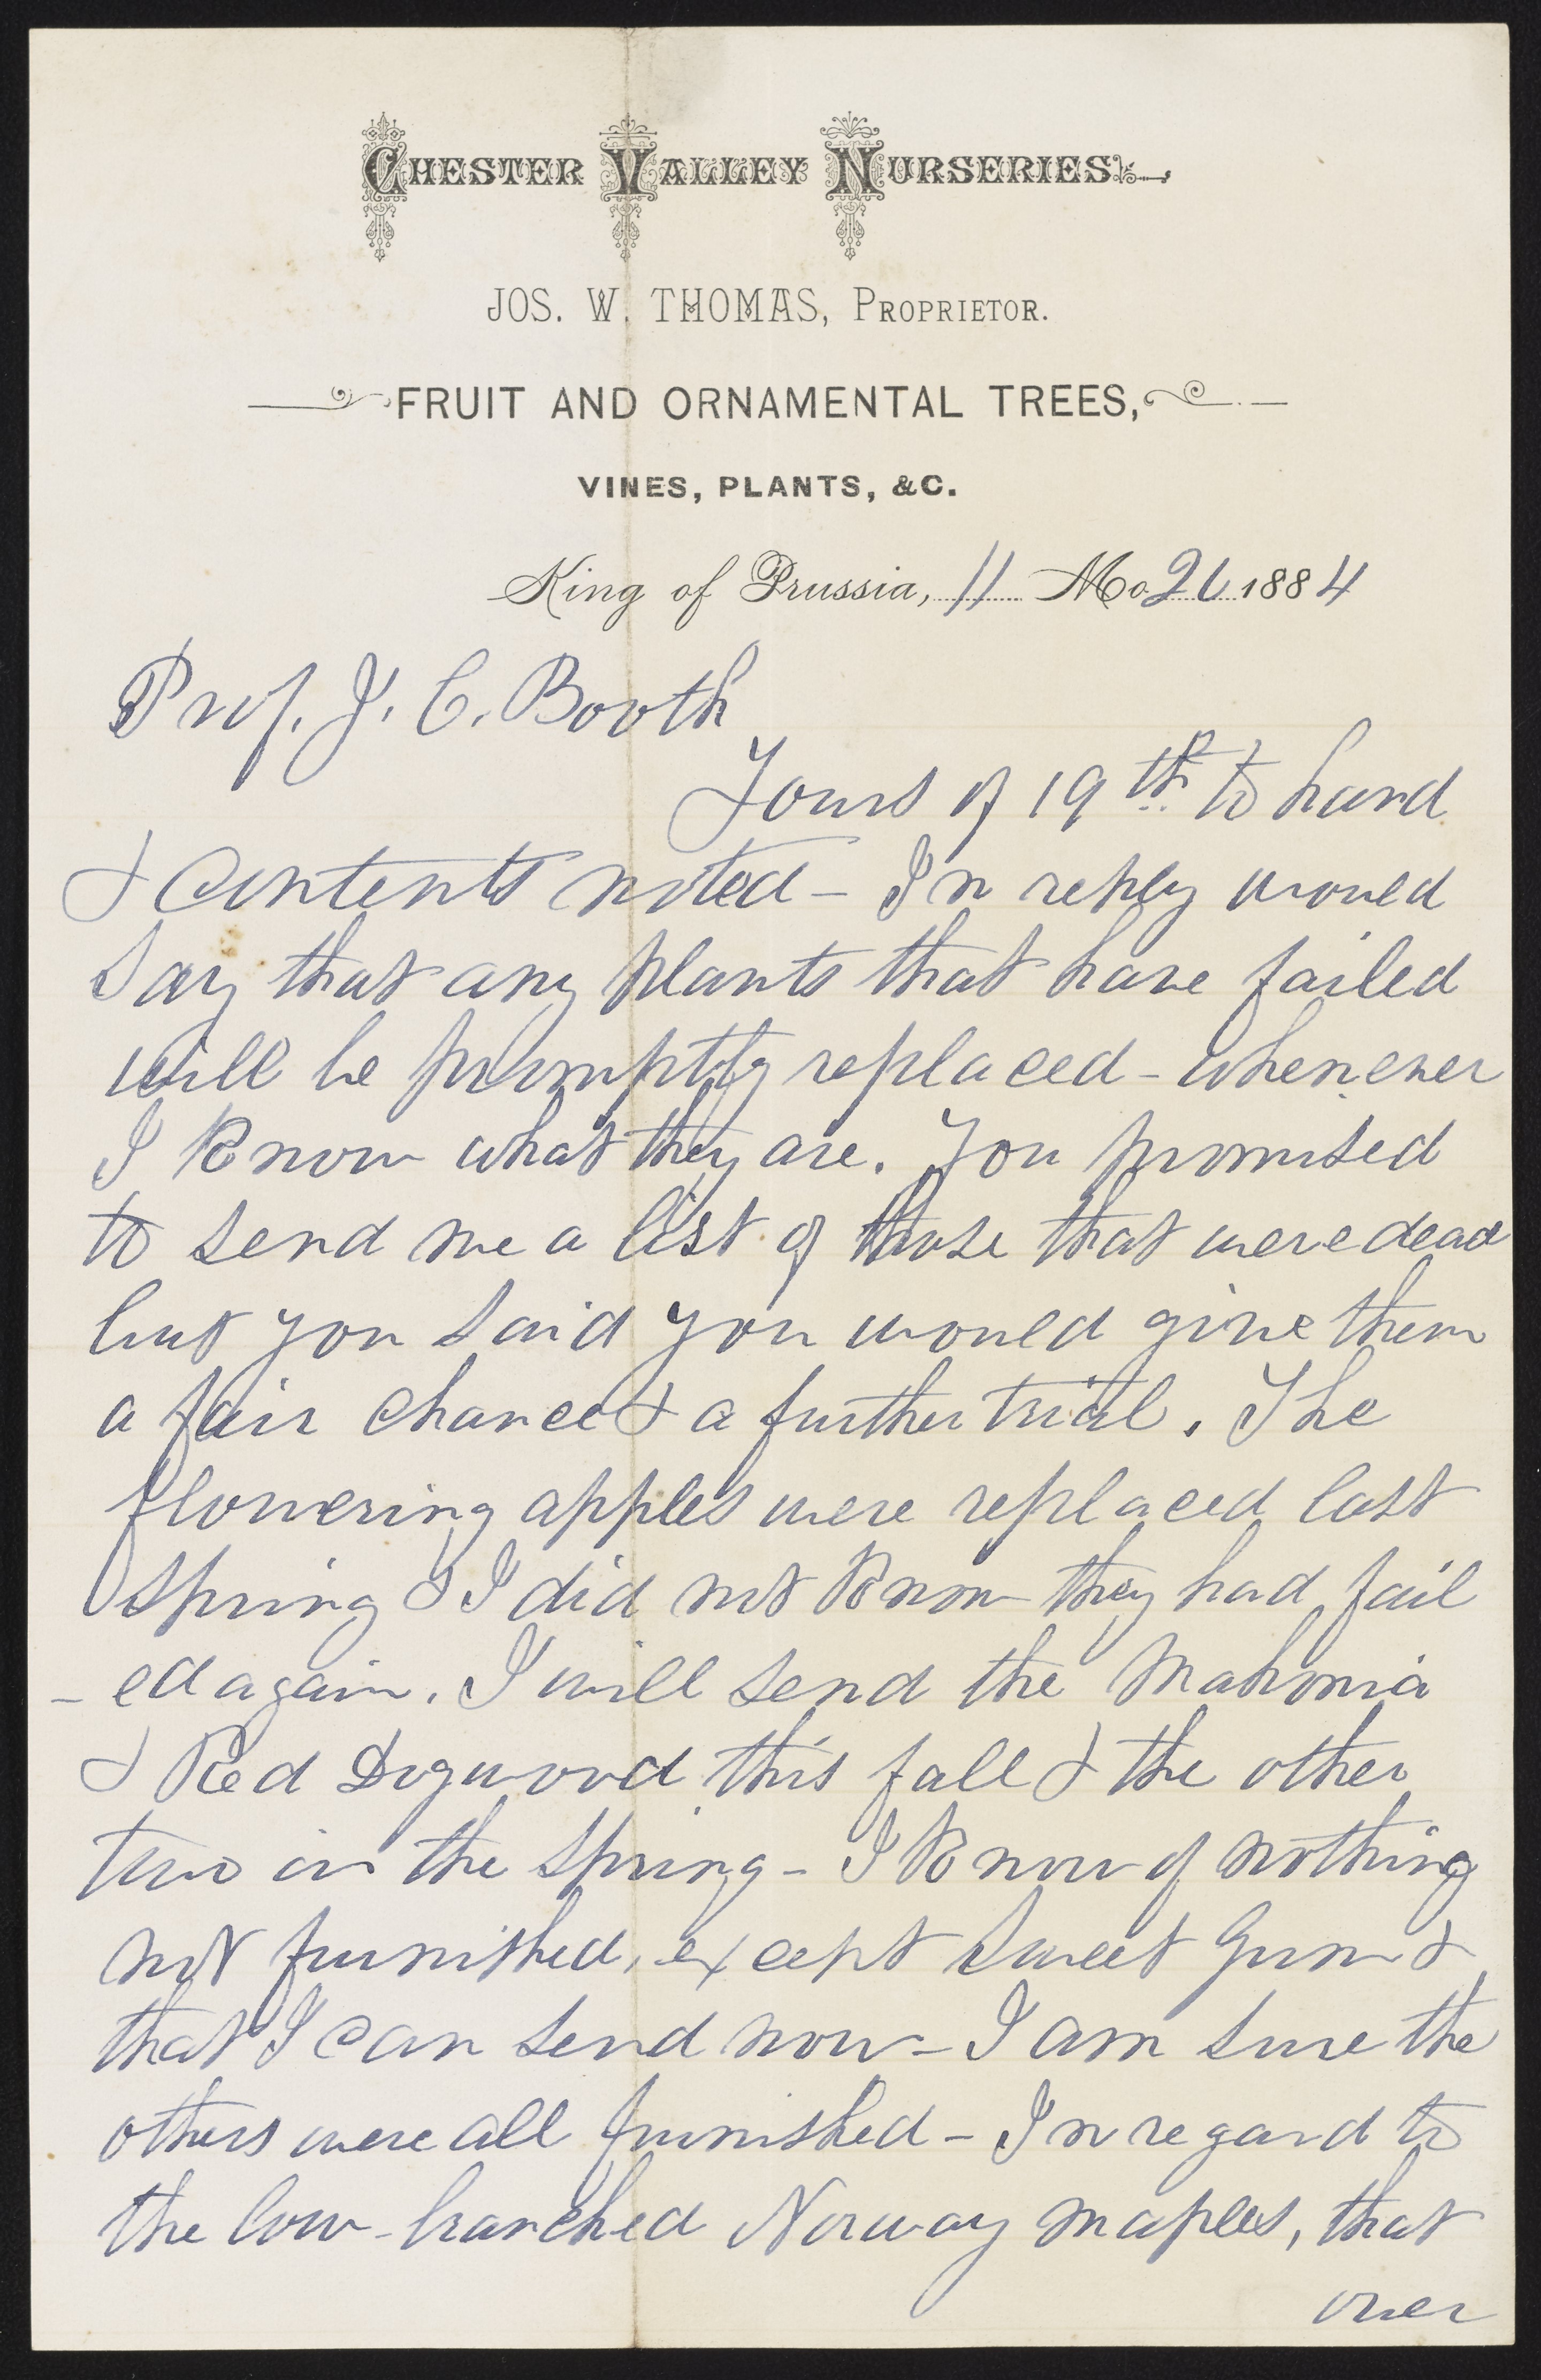 CHESTER VALLEY NURSERIES,
JOS. W. THOMAS, PROPRIETOR.
FRUIT AND ORNAMENTAL TREES,
VINES, PLANTS, &C.
King of Prussia, 11 Mo 21 1884
Prof. J. C. Booth
Yours of 19th to hand
& contents noted - In reply would
say that any plants that have failed
will be promptly replaced - whenever
I know what they are. You promised
to send me a list of those that were dead
but you said you would give them
a fair chance & a further trial. The
flowering apples were replaced last
spring & I did not know they had fail
- ed again. I will send the Mahonia
& Red Dogwood this fall & the other
two in the spring - I know of nothing
not furnished, except Sweet Gum &
that I can send now - I am sure the
others were all furnished - In regard to
the low-branched Norway maples, that
over